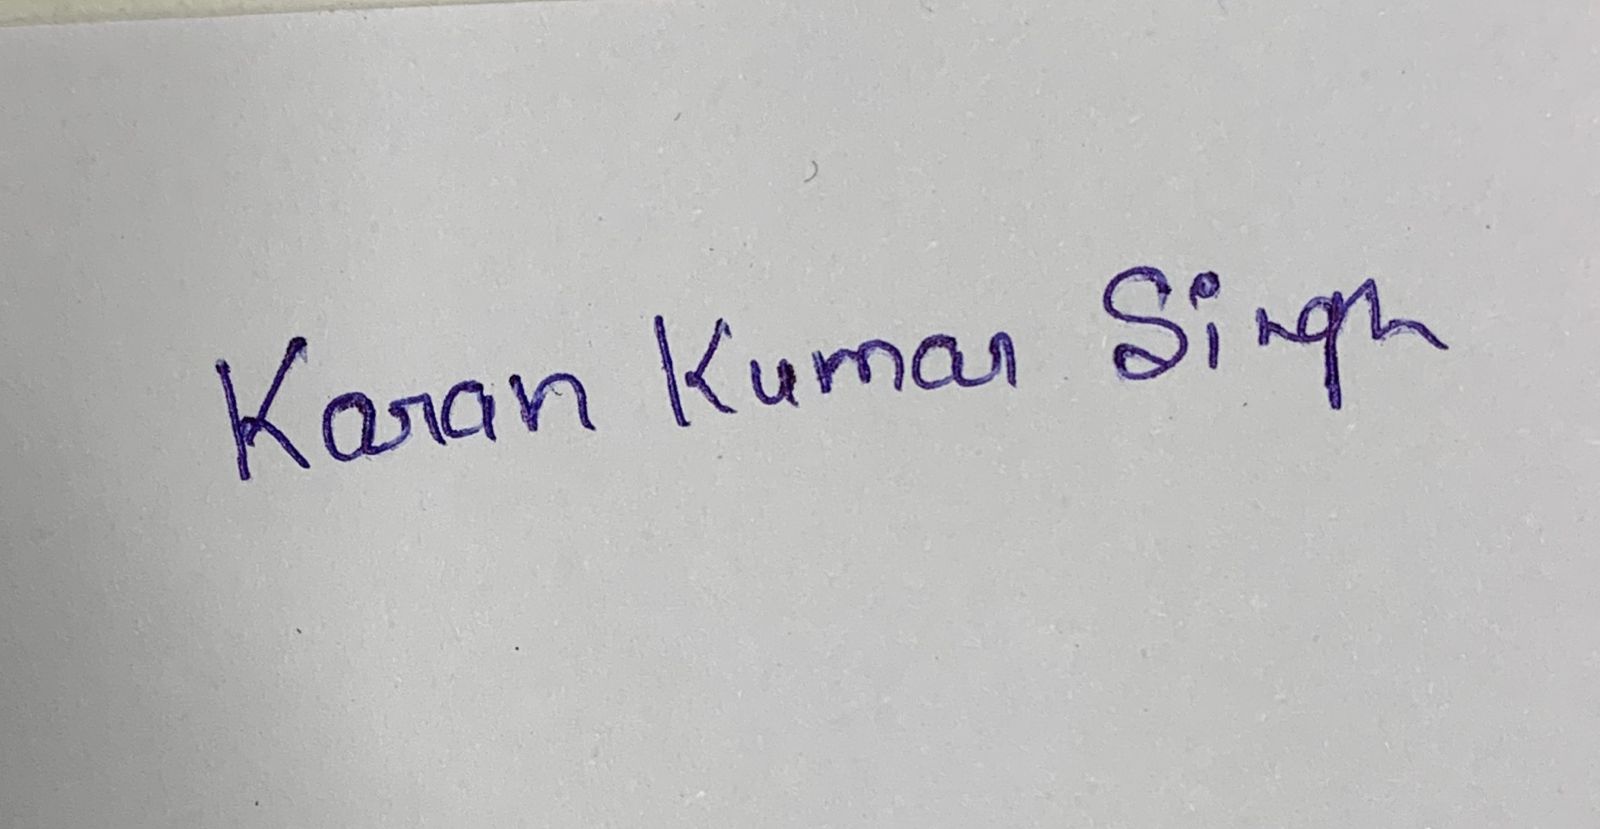 Karan Kumar Singh